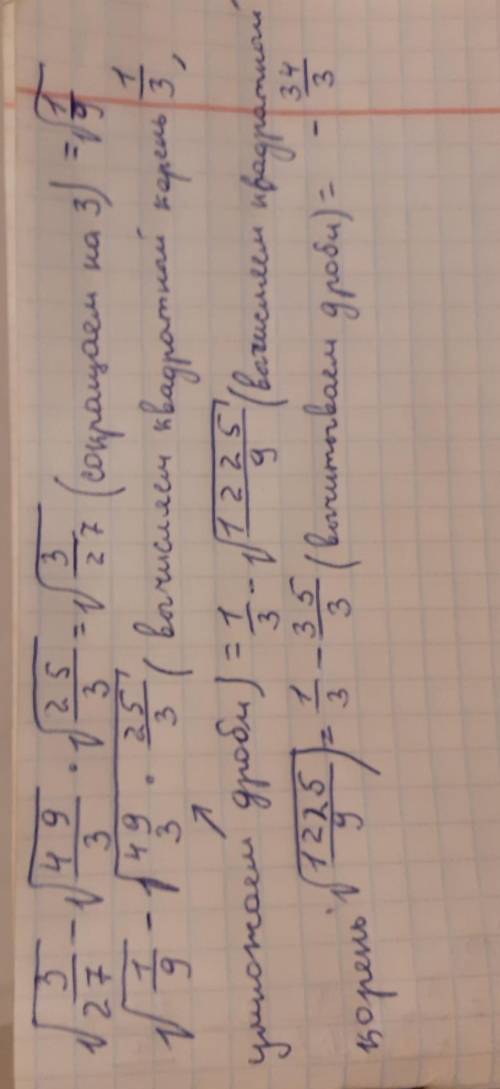 √3/27 - √49/3 · √25/3 = √3/27 (сокращаем на 3) = √1/9
√1/9 - √49/3 · 25/3 (вычисляем квадратной корень 1/3,
умножаем дроби) = 1/3 - √1225/9 (вычисляем квадратной
корень √1225/9) = 1/3 - 35/3 (вычитываем дроби) = - 34/3